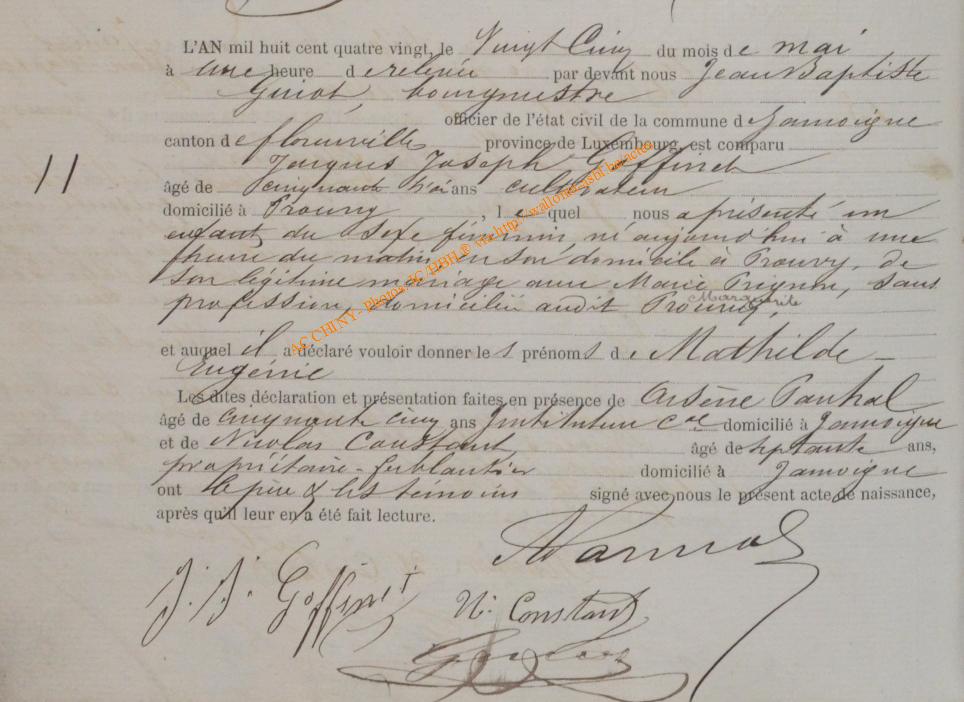 L'AN mil huit cent quatre vingt, le Vingt Cinq du mois de mai
à une heure de relevée par devant nous Jean Baptiste
Guiot, bourgmestre
officier de l'état civil de la commune de Jamoigne
canton de florenville province de Luxembourg, est comparu
Jacques Joseph Goffinet
11
âgé de cinquante ans cultivateur
domicilié à Prouvy, lequel nous a présenté un
enfant du sexe féminin, né aujourd'hui à une
heure du matin en son domicile à Prouvy, de
son légitime mariage avec Marie Prignon, sans
Marguerite
profession, domiciliée audit Prouvy,
et auquel il a déclaré vouloir donner les prénoms de Mathilde
Eugénie
Les dites déclaration et présentation faites en présence de Arsène
âgé de cinquante cinq ans Instituteur Cal domicilié à Jamoigne
et de Nicolas Constant, âgé de septante ans,
propriétaire-ferblantier domicilié à Jamoigne
ont le père & les témoins signé avec nous le présent acte de naissance,
après qu'il leur en a été fait lecture.
J. J. Goffinet
N. Constant
AC CHINY - Photos JC/HBH® via http://wallonia.asbl.be/actes